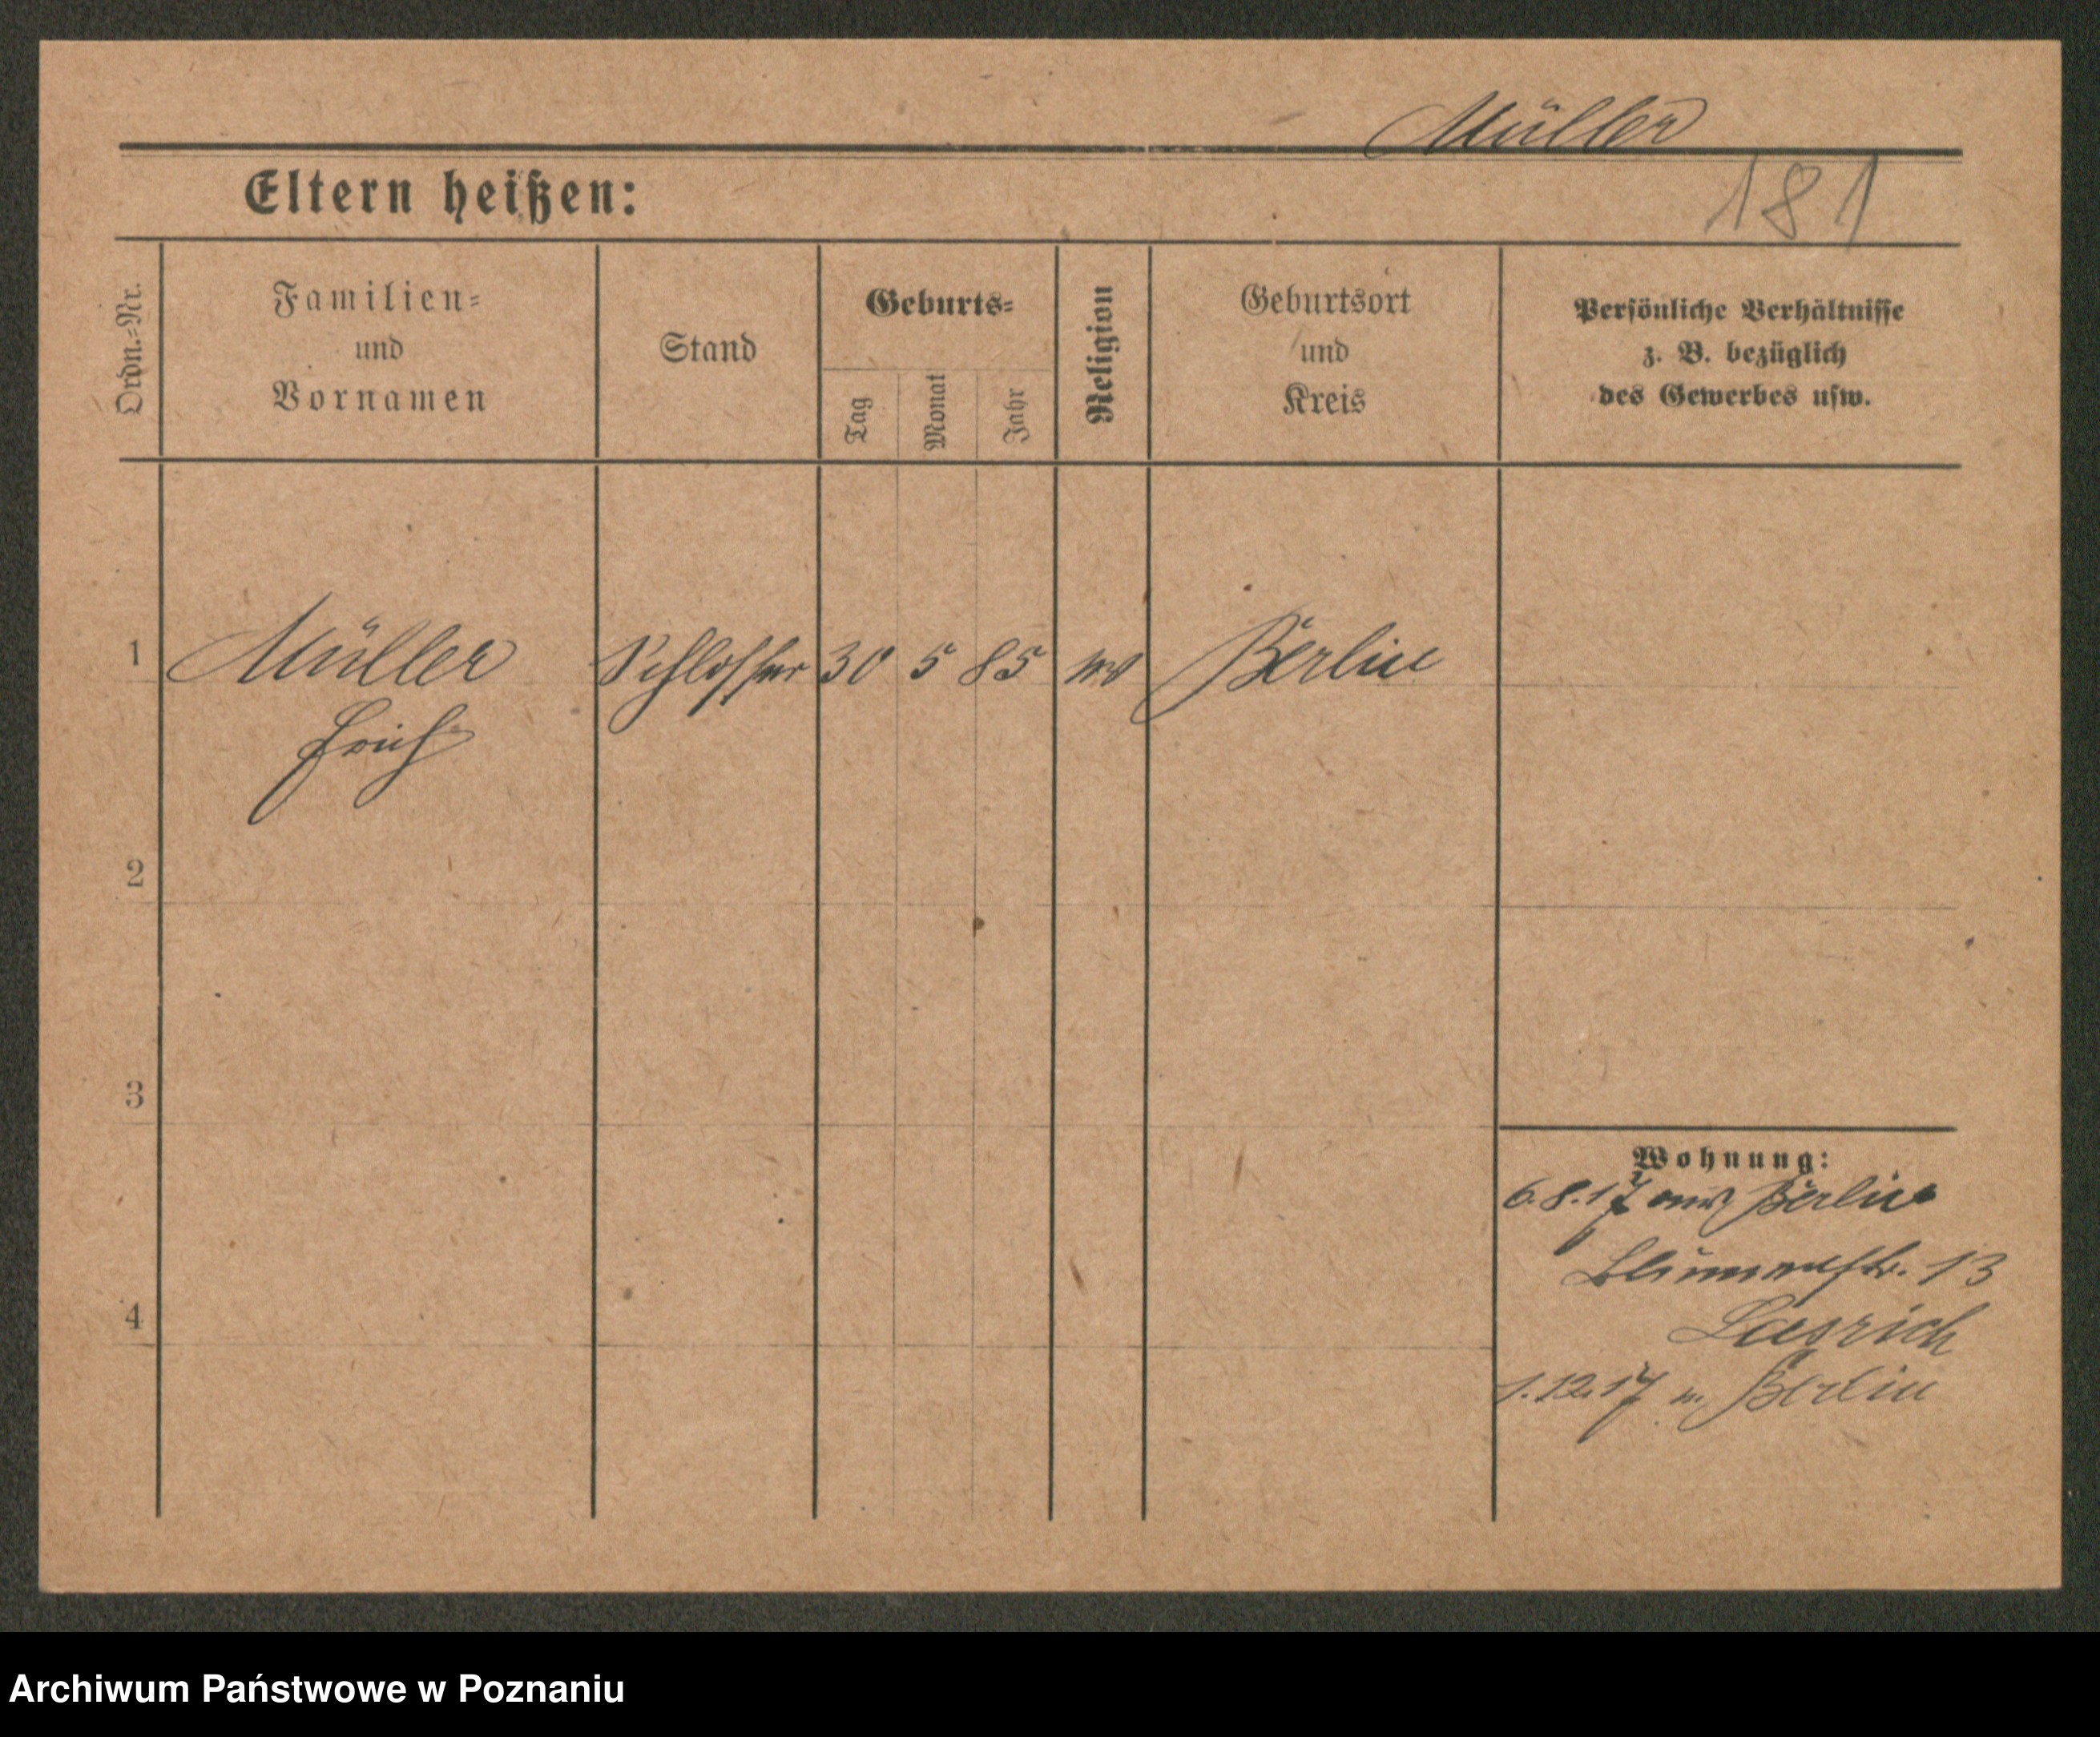 Müller
Eltern heißen:
181
Ordn.-Nr.
Familien-
und
Vornamen
Stand
Geburts-
Tag
Monat
Jahr
Religion
Geburtsort
und
Kreis
Persönliche Verhältnisse
z. B. bezüglich
des Gewerbes usw.
1
Müller
Erich
Schlosser
30
5
85
Berlin
2
3
4
Wohnung:
6.8.17 aus Berlin
Blumenstr. 13
1.12.17 n. Berlin
Archiwum Państwowe w Poznaniu